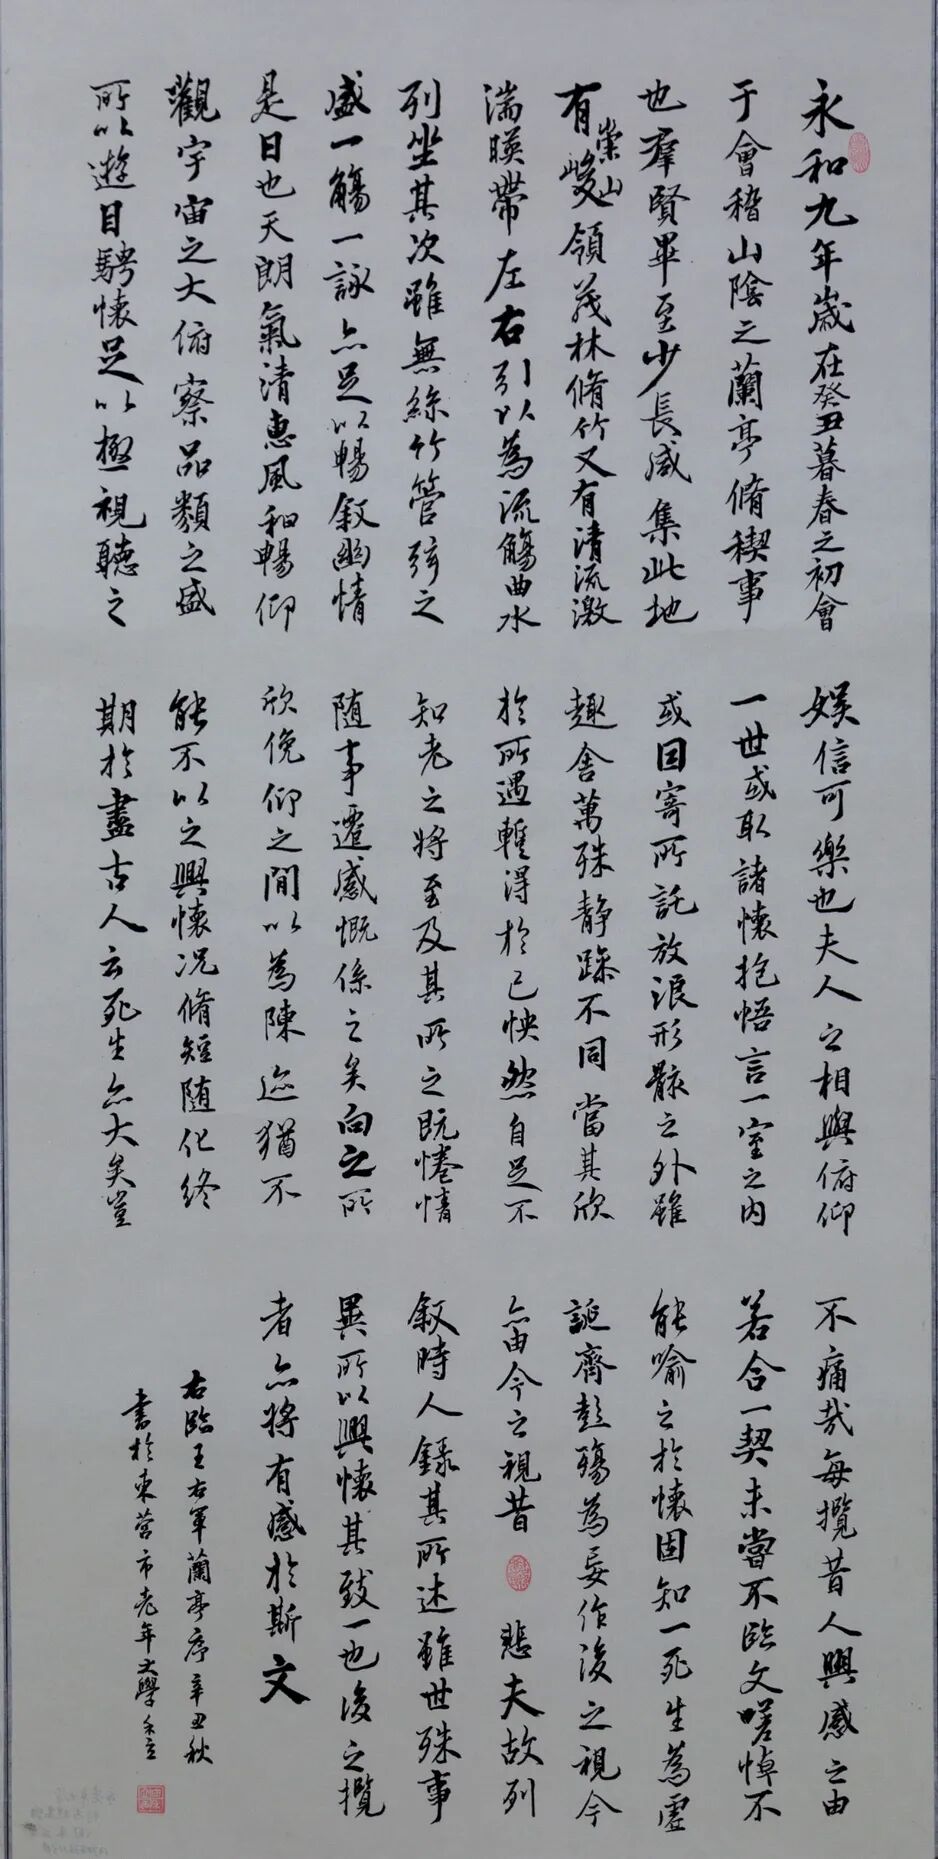 永和九年歲在癸丑暮春之初會
于會稽山陰之蘭亭脩稧事
也羣賢畢至少長咸集此地
有崇山峻領茂林脩竹又有清流激
湍暎帶左右引以為流觴曲水
列坐其次雖無絲竹管弦之
盛一觴一詠亦足以暢敘幽情
是日也天朗氣清惠風和暢仰
觀宇宙之大俯察品類之盛
所以遊目騁懷足以極視聽之
娛信可樂也夫人之相與俯仰
一世或取諸懷抱悟言一室之内
或因寄所託放浪形骸之外雖
趣舎萬殊静躁不同當其欣
於所遇暫得於己怏然自足不
知老之將至及其所之既惓情
随事遷感慨係之矣向之所
欣俛仰之間以為陳迹猶不
能不以之興懷況脩短随化終
期於盡古人云死生亦大矣豈
不痛哉每攬昔人興感之由
若合一契未嘗不臨文嗟悼不
能喻之於懷固知一死生為虛
誕齊彭殤為妄作後之視今
亦由今之視昔 悲夫故列
敘時人錄其所述雖世殊事
異所以興懷其致一也後之攬
者亦將有感於斯文
右臨王右軍蘭亭序辛丑秋
書於東营市老年大學